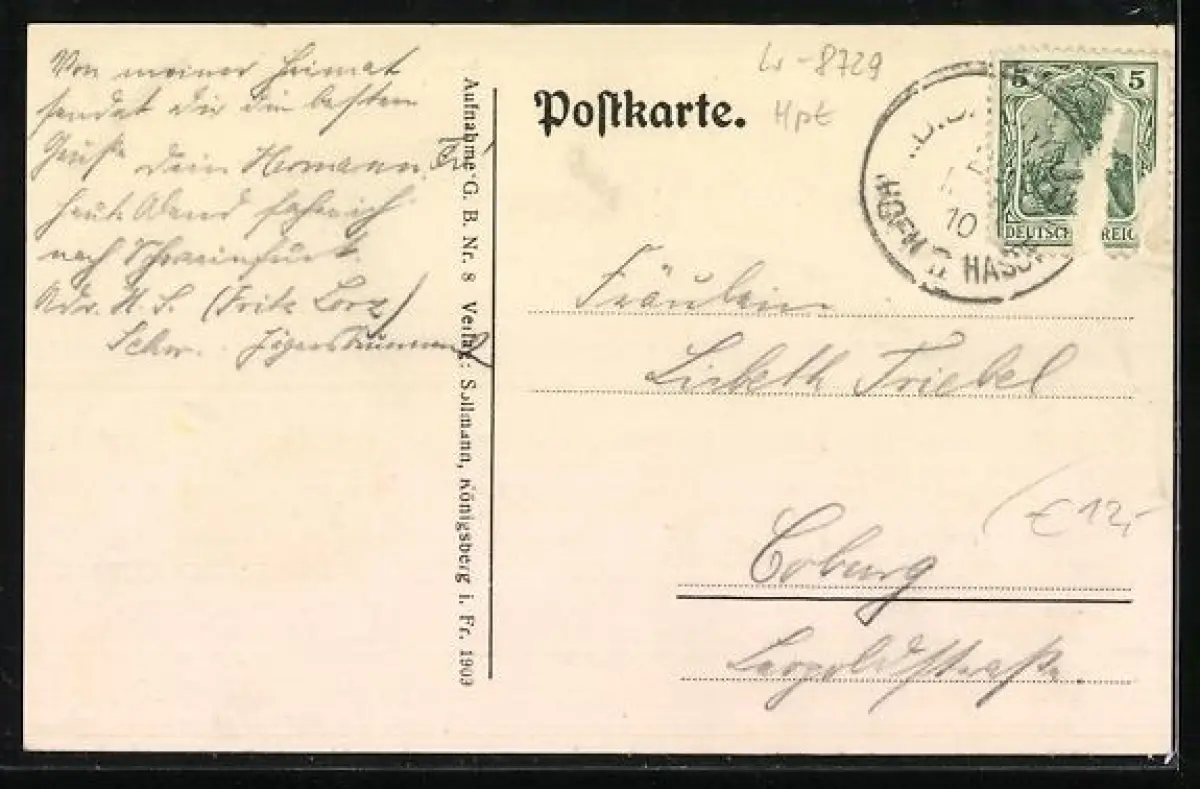 Von meiner Heimat
sendet dir die besten
Grüße dein Hermann.
Heute Abend fahre ich
nach Schweinfurt.
Adr. H. S. (Fritz Lorz)
Schw. Jägersbrunnen
Aufnahme G. B. Nr. 8 Verlag: Sollmann, Königsberg i. Fr. 1909
Postkarte.
W-8729
Hpt
5 5
DEUTSCHES REICH
10
HASS
Fräulein
Lisbeth Triebel
€ 12,-
Coburg
Leopoldstraße.